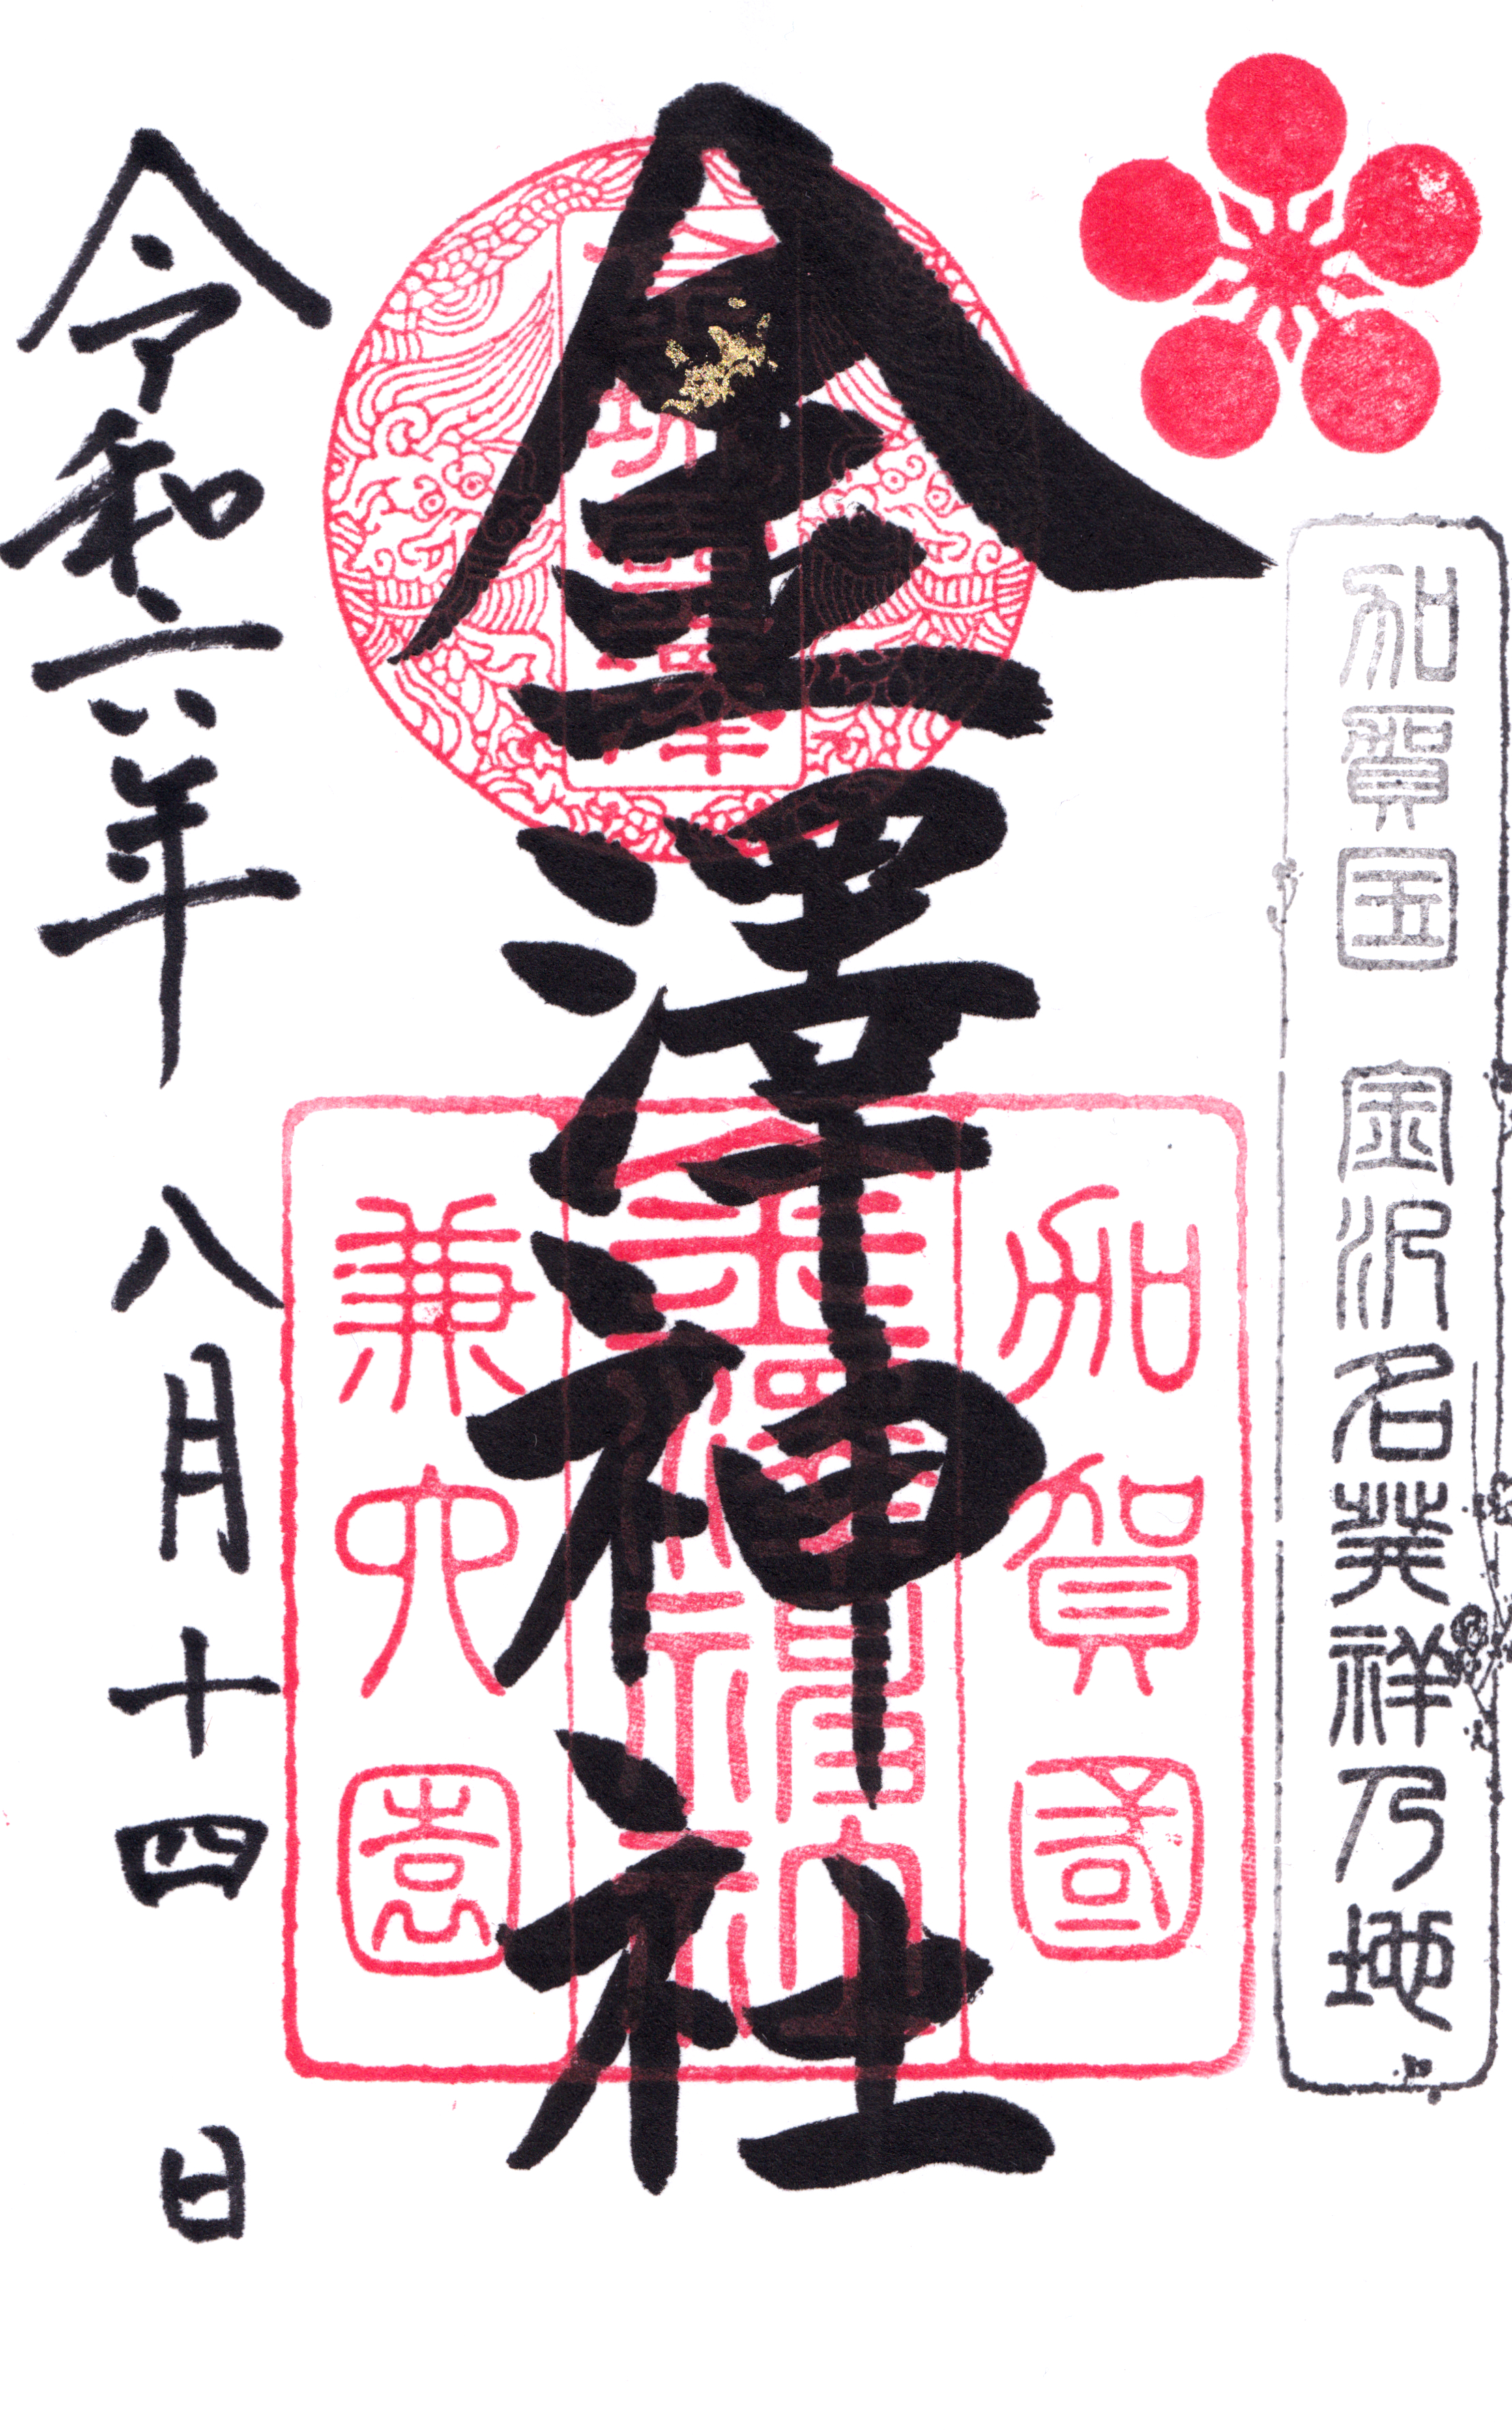 加賀国 金沢名発祥乃地
金澤神社
加賀國
兼六園
令和六年 八月十四日